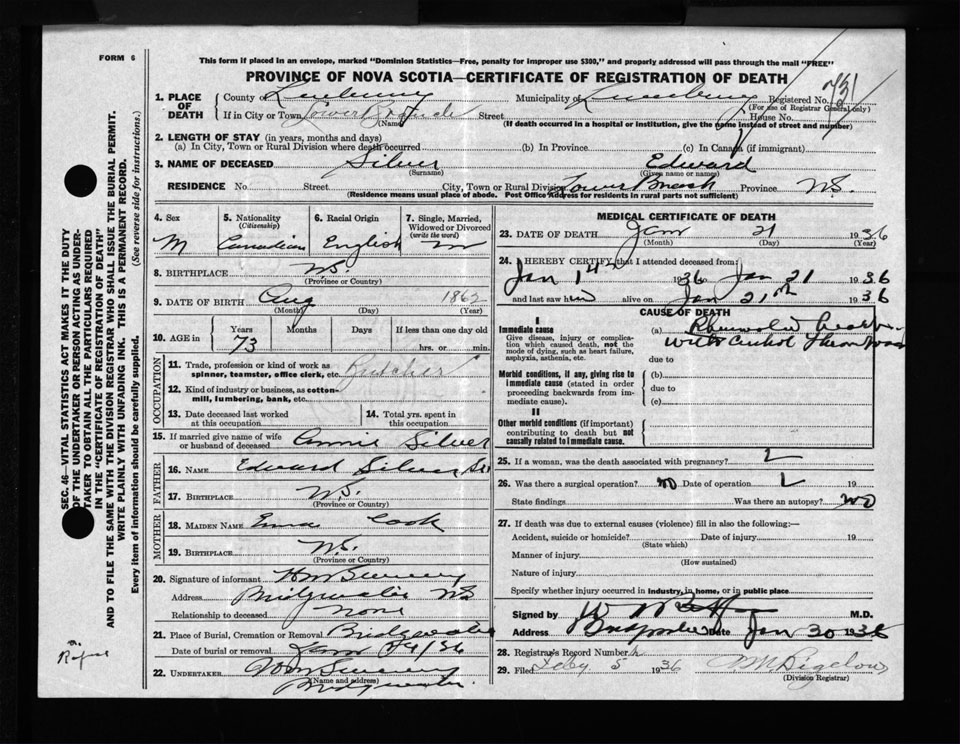 FORM 6
This form if placed in an envelope, marked "Dominion Statistics—Free, penalty for improper use $300," and properly addressed will pass through the mail "FREE"
PROVINCE OF NOVA SCOTIA—CERTIFICATE OF REGISTRATION OF DEATH
1. PLACE OF DEATH
County of Lunenburg Municipality of Lunenburg Registered No.
(For use of Registrar General only)
If in City or Town Street House No.
(Name) (If death occurred in a hospital or institution, give the name instead of street and number)
2. LENGTH OF STAY (in years, months and days)
(a) In City, Town or Rural Division where death occurred (b) In Province (c) In Canada (if immigrant)
3. NAME OF DECEASED Silver Edward
(Surname) (Given name or names)
RESIDENCE No. Street City, Town or Rural Division Lower Branch Province N.S.
(Residence means usual place of abode. Post Office Address for residents in rural parts not sufficient)
4. Sex M
5. Nationality (Citizenship) Canadian
6. Racial Origin English
7. Single, Married, Widowed or Divorced (write the word) m
8. BIRTHPLACE N.S.
(Province or Country)
9. DATE OF BIRTH Aug 1862
(Month) (Day) (Year)
10. AGE in Years Months Days If less than one day old
73 hrs. or min.
OCCUPATION
11. Trade, profession or kind of work as spinner, teamster, office clerk, etc. Butcher
12. Kind of industry or business, as cotton-mill, lumbering, bank, etc.
13. Date deceased last worked at this occupation
14. Total yrs. spent in this occupation
15. If married give name of wife or husband of deceased Annie Silver
FATHER
16. NAME Edward Silver Sr
17. BIRTHPLACE N.S.
(Province or Country)
MOTHER
18. MAIDEN NAME Emma Cook
19. BIRTHPLACE N.S.
(Province or Country)
20. Signature of informant Wm Sweeny
Address Bridgewater NS
Relationship to deceased None
21. Place of Burial, Cremation or Removal Bridgewater
Date of burial or removal Jan 24/36
22. UNDERTAKER Wm Sweeny
(Name and address)
Bridgewater
MEDICAL CERTIFICATE OF DEATH
23. DATE OF DEATH Jan 21 1936
(Month) (Day) (Year)
24. I HEREBY CERTIFY that I attended deceased from:
Jan 1936 to Jan 21 1936
and last saw him alive on Jan 21st 1936
CAUSE OF DEATH
I
Immediate cause
Give disease, injury or complication which caused death, not the mode of dying, such as heart failure, asphyxia, asthenia, etc.
(a)
due to
Morbid conditions, if any, giving rise to immediate cause (stated in order proceeding backwards from immediate cause).
(b)
due to
(c)
II
Other morbid conditions (if important) contributing to death but not causally related to immediate cause.
25. If a woman, was the death associated with pregnancy?
26. Was there a surgical operation? no Date of operation 19
State findings Was there an autopsy? no
27. If death was due to external causes (violence) fill in also the following:—
Accident, suicide or homicide? Date of injury 19
(State which)
Manner of injury
(How sustained)
Nature of injury
Specify whether injury occurred in industry, in home, or in public place
Signed by M.D.
Address Bridgewater Date Jan 30 1936
28. Registrar's Record Number
29. Filed Feby 5 1936
(Division Registrar)
SEC. 46—VITAL STATISTICS ACT MAKES IT THE DUTY
OF THE UNDERTAKER OR PERSON ACTING AS UNDER-
TAKER TO OBTAIN ALL THE PARTICULARS REQUIRED
IN THE "CERTIFICATE OF REGISTRATION OF DEATH"
AND TO FILE THE SAME WITH THE DIVISION REGISTRAR WHO SHALL ISSUE THE BURIAL PERMIT.
WRITE PLAINLY WITH UNFADING INK. THIS IS A PERMANENT RECORD.
Every item of information should be carefully supplied. (See reverse side for instructions.)